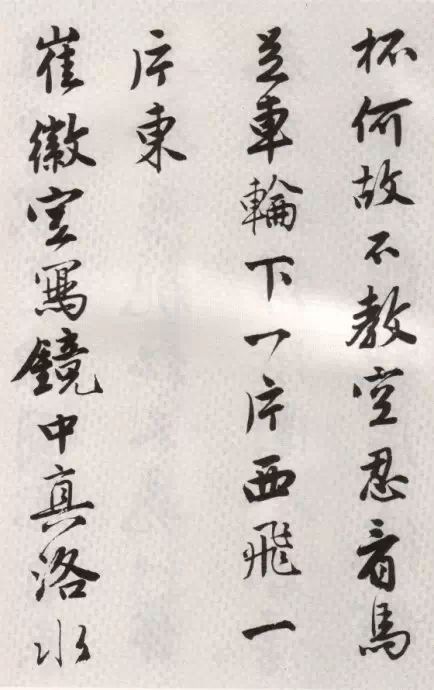 杯何故不教空忍看馬
足車輪下一片西飛一
片東
崔徽空寫鏡中真洛水